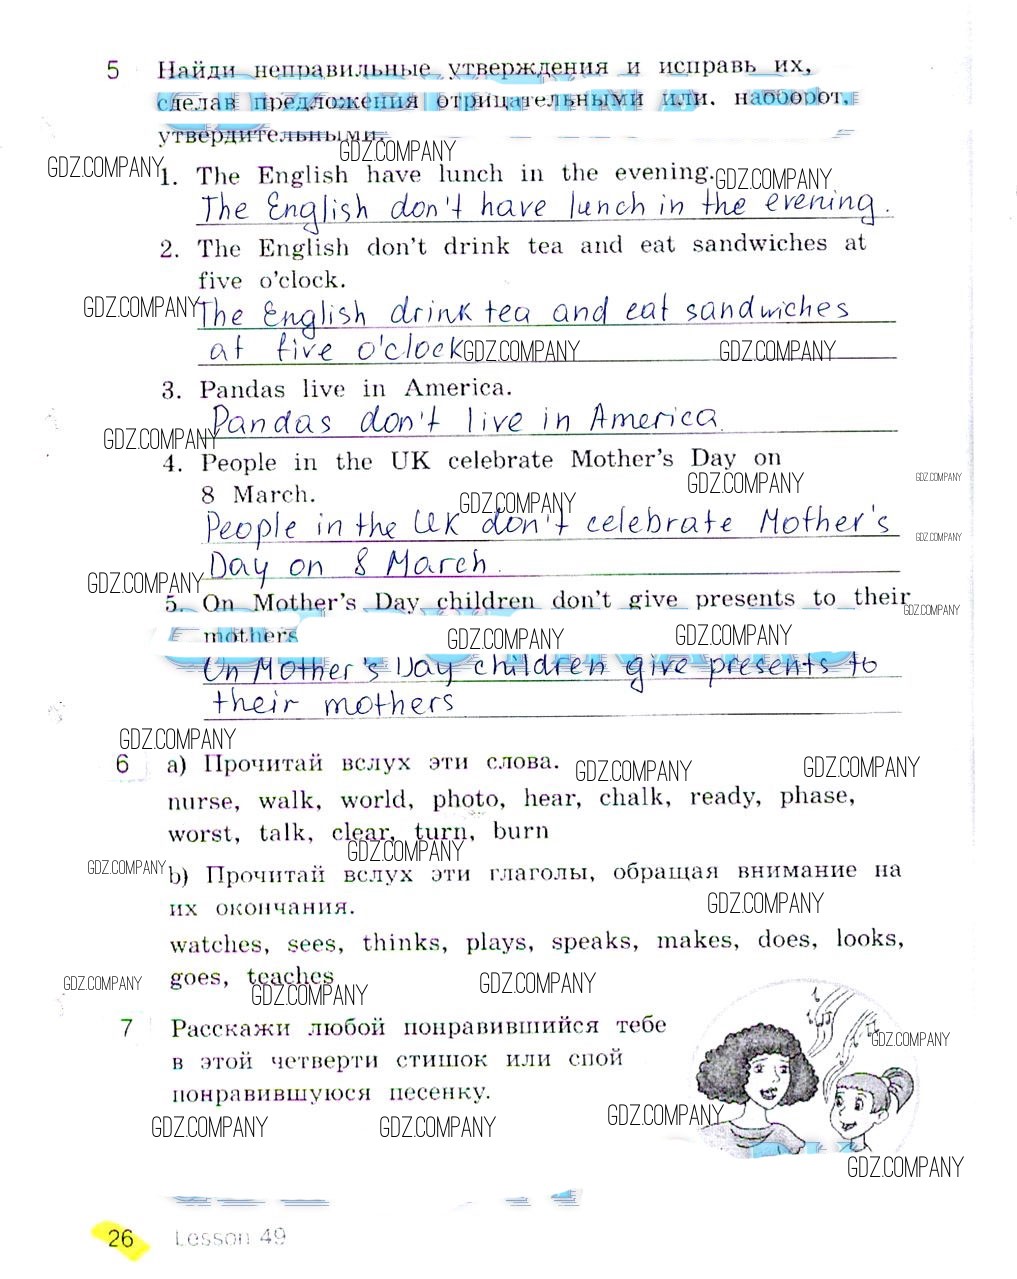 5 Найди неправильные утверждения и исправь их,
сделав предложения отрицательными или, наоборот,
утвердительными.
GDZ.COMPANY
GDZ.COMPANY
1. The English have lunch in the evening.
GDZ.COMPANY
The English don't have lunch in the evening.
2. The English don't drink tea and eat sandwiches at
five o'clock.
GDZ.COMPANY
The English drink tea and eat sandwiches
at five o'clock
GDZ.COMPANY
GDZ.COMPANY
3. Pandas live in America.
Pandas don't live in America.
GDZ.COMPANY
4. People in the UK celebrate Mother's Day on
GDZ.COMPANY
GDZ.COMPANY
8 March.
GDZ.COMPANY
People in the UK don't celebrate Mother's
GDZ.COMPANY
Day on 8 March.
GDZ.COMPANY
5. On Mother's Day children don't give presents to their
GDZ.COMPANY
mothers
GDZ.COMPANY
GDZ.COMPANY
On Mother's Day children give presents to
their mothers
GDZ.COMPANY
6 a) Прочитай вслух эти слова.
GDZ.COMPANY
GDZ.COMPANY
nurse, walk, world, photo, hear, chalk, ready, phase,
worst, talk, clear, turn, burn
GDZ.COMPANY
GDZ.COMPANY
b) Прочитай вслух эти глаголы, обращая внимание на
их окончания.
GDZ.COMPANY
watches, sees, thinks, plays, speaks, makes, does, looks,
goes, teaches
GDZ.COMPANY
GDZ.COMPANY
GDZ.COMPANY
7 Расскажи любой понравившийся тебе
GDZ.COMPANY
в этой четверти стишок или спой
понравившуюся песенку.
GDZ.COMPANY
GDZ.COMPANY
GDZ.COMPANY
GDZ.COMPANY
26 Lesson 49